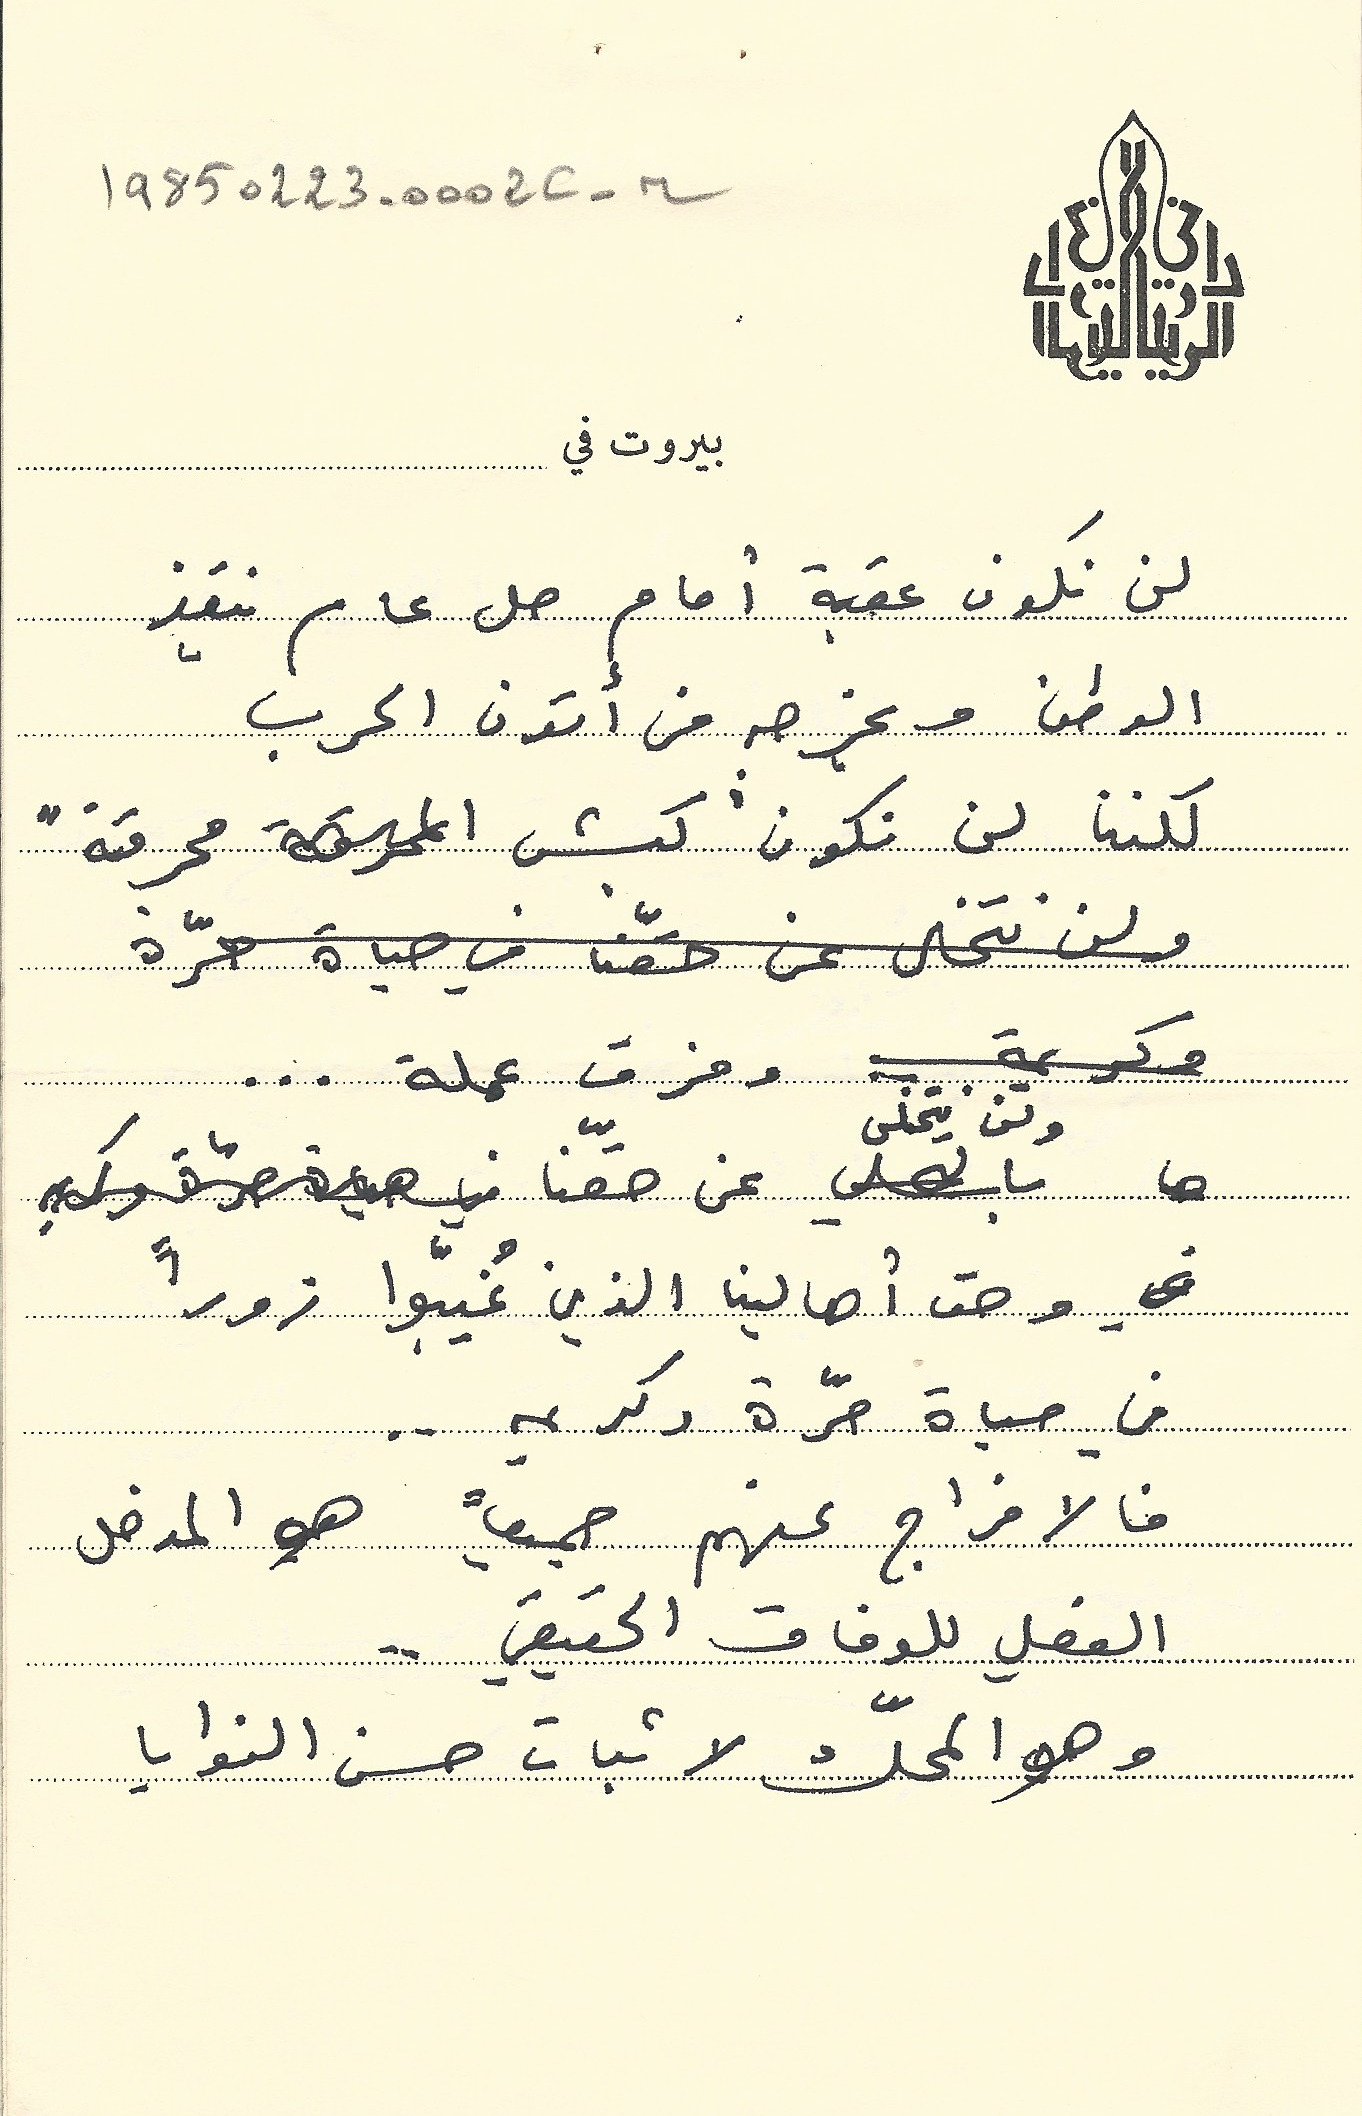 19850223.0002C-M
بيروت في
لن نكون عقبة أمام حل عام ينقذ
الوطن ويخرجه من أتون الحرب
لكننا لن نكون "كبش المحرقة محرقة"
ولن نتخلى عن حقّنا في حياة حرّة
وكريمة ومزق عملة ...
ولن نتخلى
عن حقّنا في حياة حرّة وكريمة
في وحق أهالينا الذين غُيّبوا زوراً
في حياة حرّة وكريمه ..
فالافراج عنهم جميعاً هو المدخل
الفعلي للوفاق الحقيقي ..
وهو المحكّ لاثبات حسن النوايا